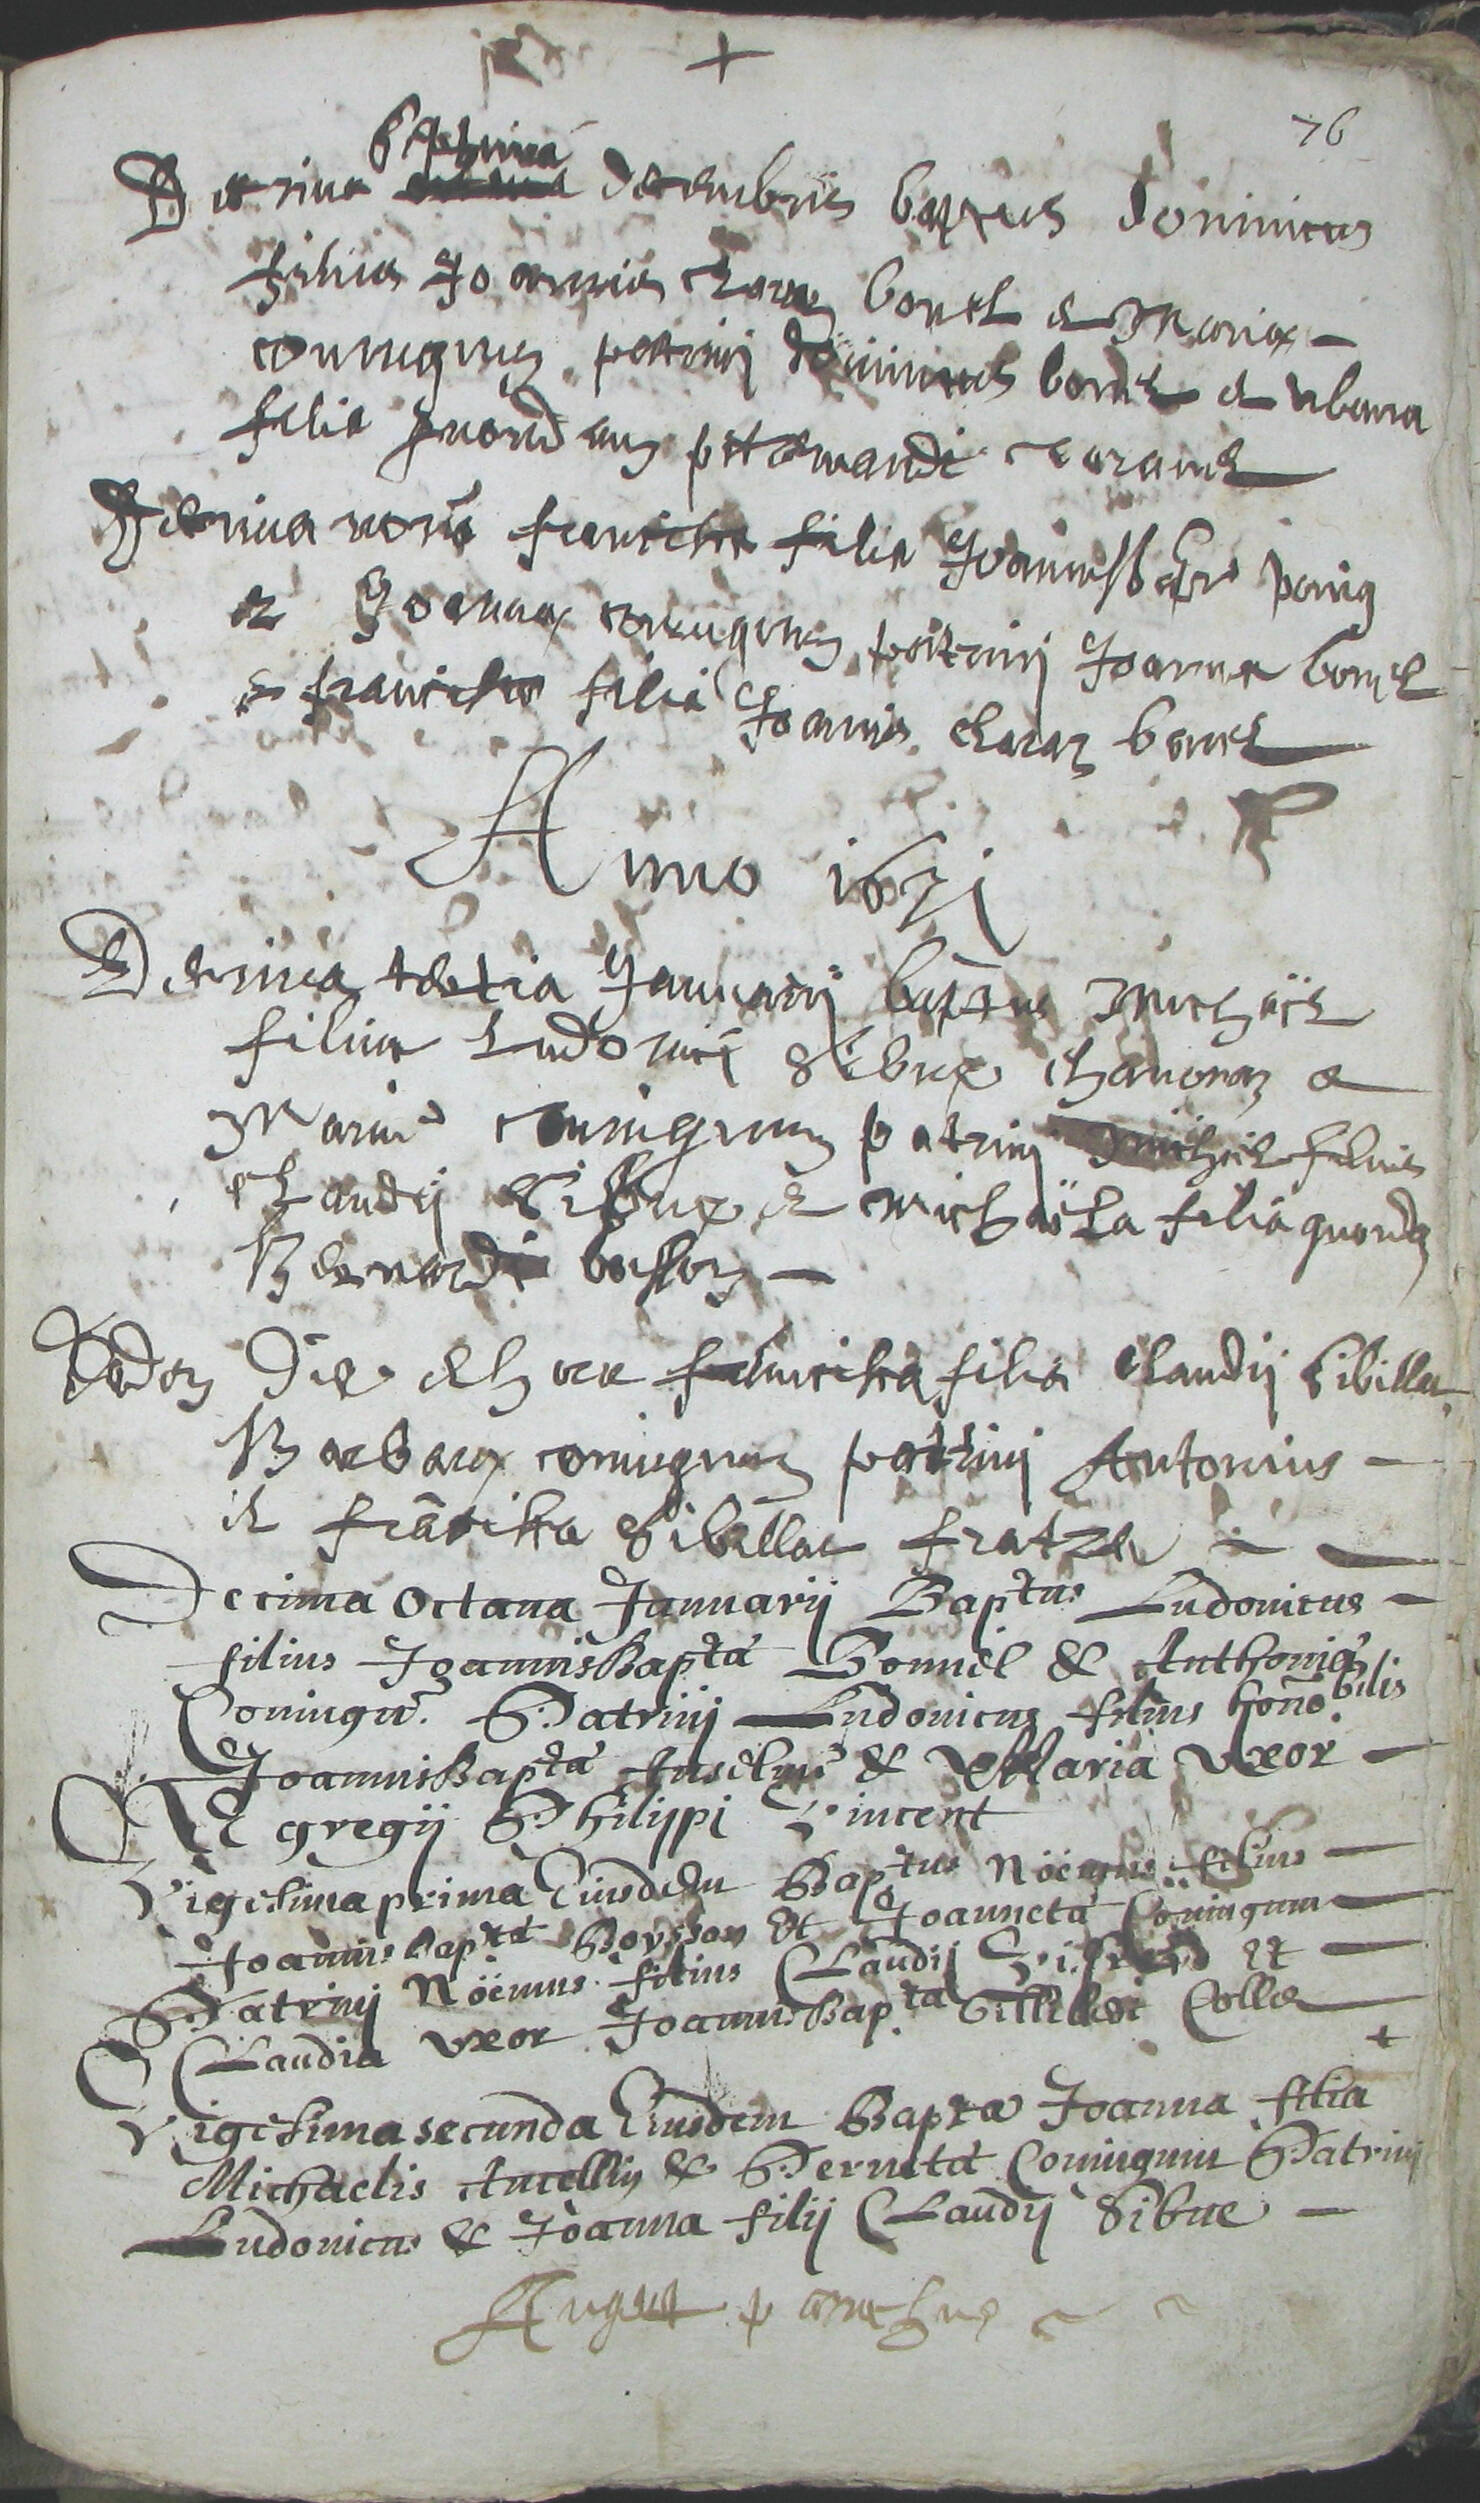 76
septima
Decima decembris baptus dominicus
filius Joannis claraz bonet et Mariæ
coniugum patrini dominicus bonet et urbana
filia quondam petemandi claranet
Decima nona francisca filia Joannisbaptæ
et Joannæ coniugum patrini Joannes bonet
et francisca filia Joannis claraz bonet
Anno 1671
Decima tertia Januarii baptus Michäel
filius Ludovici Sibue chavonaz et
Mariæ coniugum patrini Michäel filius
claudij Sibue et michäela filia quondam
Bernardi
Eadem die et hora francisca filia claudij Sibillat
Barbaræ coniugum patrini Antonius
et frãcisca Sibillat fratres
Decima Octaua Januarij Baptus Ludouicus
filius JoannisBaptæ Bonnel & Anthoniæ
Coniugũ. Patrinij Ludouicus filius honobilis
JoannisBaptæ Anselme & Maria vxor
Egregij Philippi Vincent
Vigesimaprima Eiusdem Baptus Nöemus filius
Joannisbaptæ Boysson Et Joannetæ Coniugum
Patrinij Nöemus filius Claudij Et
Claudia vxor JoannisBaptæ Collet
Vigesima secunda Eiusdem Bapta Joanna filia
Michaelis Ancellin & Pernetæ Coniugum Patrinij
Ludouicus & Joanna filij Claudij Sibue